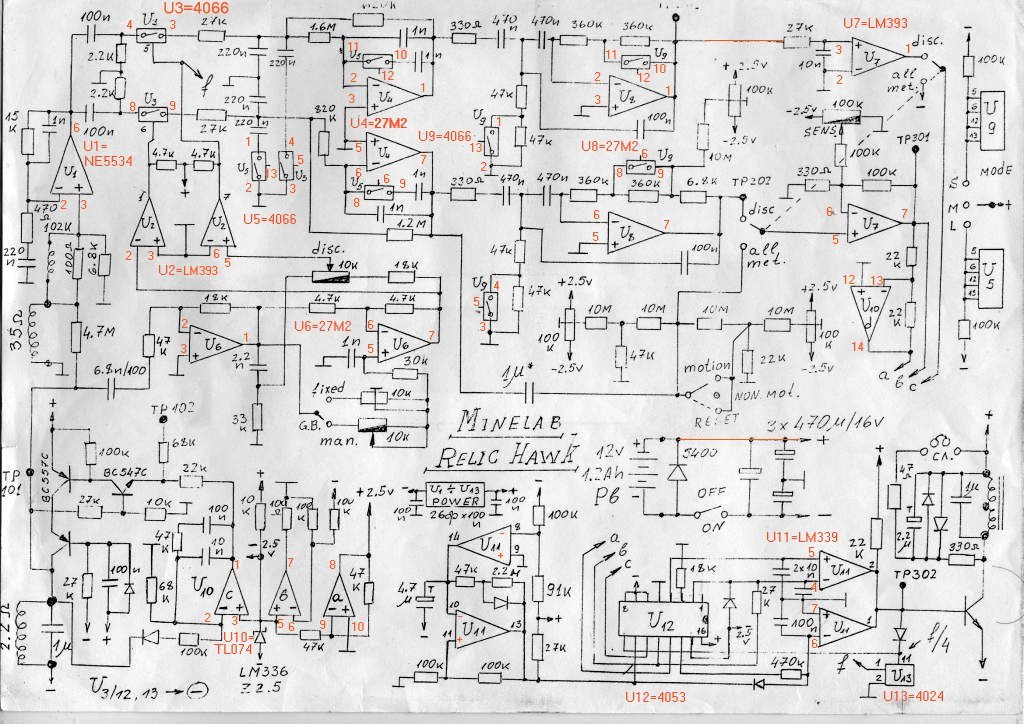 U3=4066
100n
4
U3
3
5
27k
220n
220n
1.6M
11
10
U5
12
1n
1n
2
3
1
U4
330Ω
470
n
470n
360k
360k
11
U9
10
12
2
3
1
U8
27k
3
10n
2
U7=LM393
1
disc.
U7
all
met.
2.2k
2.2k
f
+2.5v
100k
-2.5v
100k
15
k
1n
100n
8
U3
9
6
27k
220
n
820
k
3
U4=27M2
U4
6
5
7
47k
U9=4066
U8=27M2
100
n
-2.5v
100k
SENS.
TP301
U
9
6
U1=
NE5534
U1
2
3
4.7k
4.7k
1
U5
13
2
4
U5
5
3
U5=4066
6
U5
9
8
1n
1n
1.2M
13
1
2
47k
10M
8
U9
9
6
100k
MODE
330Ω
470n
470n
360k
360k
6.8k
TP202
disc
330Ω
100k
S
M
L
470
Ω
102k
220
n
100Ω
6.8k
1
U2
2
3
7
U2
6
5
U2=LM393
6
5
U8
7
all
met.
100n
6
5
U7
7
22
k
disc.
10k
18k
47k
U9
4
5
3
47k
+2.5v
100
k
-2.5v
10M
10M
10M
10M
+2.5v
100
k
-2.5v
12
13
U10
d
14
22
k
U
5
100k
35Ω
4.7M
18k
4.7k
4.7k
U6=27M2
2
3
U6
1
6
5
7
U6
47
k
2.2
n
1n
30k
47k
22
k
a
b
c
6.8n/100
1μ*
motion
NON. MOT.
RESET
fixed
10k
G.B.
man.
10k
33
k
TP102
MINELAB
RELIC HAWK
3x470μ/16v
BC557C
100k
BC547C
68k
22k
12v
1.2Ah
Pb
5400
OFF
ON
TP
101
27k
10k
U1÷U13
POWER
26 бр x100
n
100
n
100
n
+2.5v
100k
СЛ.
47
1μ
2.2
μ
330Ω
U11=LM339
22
k
TP302
47
k
100
n
10
n
-2.5
v
14
U11
8
9
47k
2.2M
91k
27
k
100n
68
k
U10
C
2
3
7
B
5
6
8
a
9
10
47
k
4.7
μ
10
U11
11
13
27k
18k
U12
16
2.5
v
27
k
2x10n
100
n
5
4
U11
2
7
6
U11
1
2.2Ω
1μ
100k
U10=
TL074
47k
LM336
Z2.5
100k
100k
470k
f/4
f
1
11
2
U13
U3/12,13 → ⊖
U12=4053
U13=4024